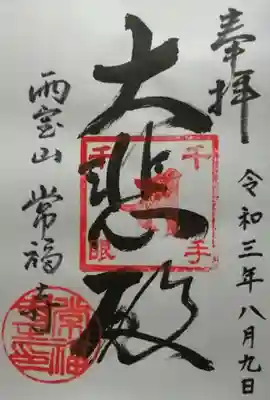 奉拝
令和三年八月九日
大悲殿
千手千眼
雨宝山 常福寺